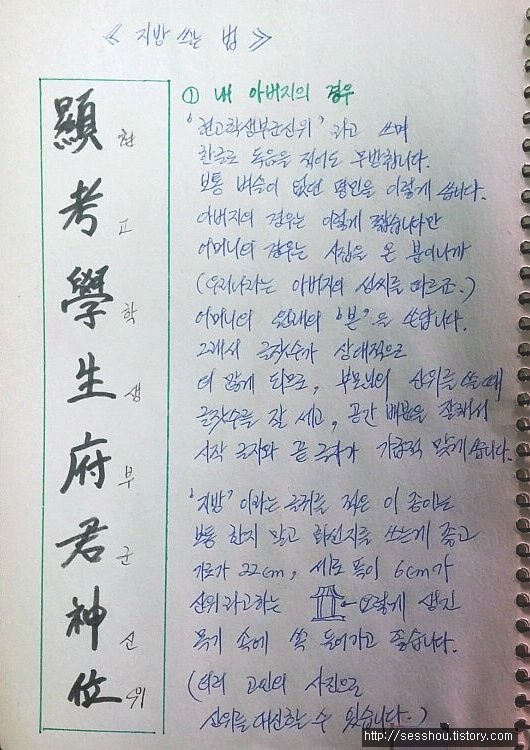 《 지방 쓰는 법 》
顯 현
考 고
學 학
生 생
府 부
君 군
神 신
位 위
① 내 아버지의 경우
'현고학생부군신위' 라고 쓰며
한글로 독음을 적어도 무방합니다.
보통 벼슬이 없던 평민을 이렇게 씁니다.
아버지의 경우는 이렇게 짧습니다만
어머니의 경우는 시집을 온 분이니까
(우리나라는 아버지의 성씨를 따르죠.)
어머니의 원래의 '본'을 쓴답니다.
그래서 글자수가 상대적으로
더 많게 되므로, 부모님의 신위를 쓸 때
글자수를 잘 세고, 공간 배분을 잘해서
시작 글자와 끝 글자가 가급적 맞게 씁니다.
'지방' 이라는 글귀를 적은 이 종이는
보통 한지 말고 화선지를 쓰는게 좋고
가로가 22cm, 세로 폭이 6cm가
신위라고하는 이렇게 생긴
목기 속에 쏙 들어가고 좋습니다.
(미리 고인의 사진으로
신위를 대신할 수 있습니다.)
http://sesshou.tistory.com